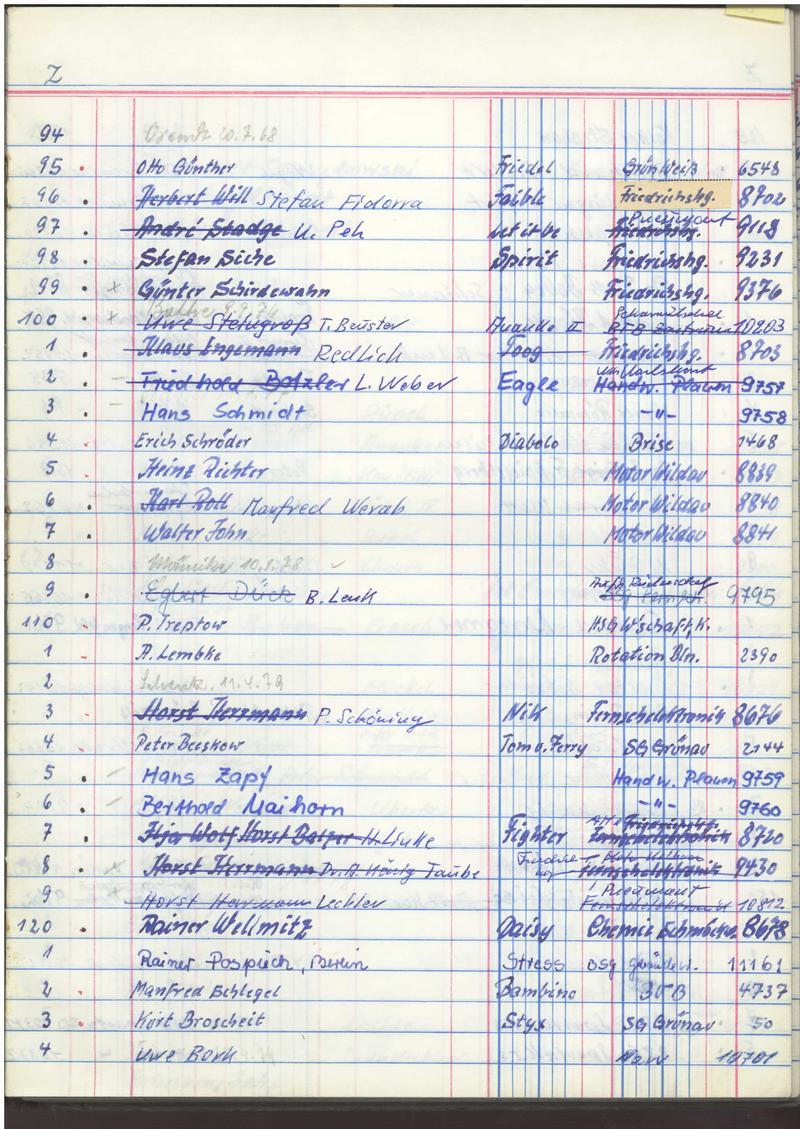 Z
94 20.7.68
95 . Otto Günther Friedel Grün Weiß 6543
96 . Herbert Will Stefan Fidorra Faible Friedrichshg. 8702
97 . André Stadge U. Peh Let it be Friedrichshg. Pneumant 9118
98 . Stefan Siche Spirit Friedrichshg. 9231
99 . x Günter Schirdewahn Friedrichshg. 9376
100 . x Uwe Steingroß T. Beuster II 10203
1 . Klaus Engemann Redlich Toog Friedrichshg. 8703
2 . – L. Weber Eagle Handw. Plauen 9757
3 . – Hans Schmidt –"– 9758
4 . Erich Schröder Diabolo Brise 1468
5 . Heinz Richter Motor Wildau 8839
6 . Manfred Werab Motor Wildau 8840
7 . Walter John Motor Wildau 8841
8 10.1.78
9 . Egbert Dück B. Lenk 9795
110 . P. Treptow HSG W'schaft, K.
1 . A. Lembke Rotation Bln. 2390
2 Schenk. 11.4.79
3 . Horst Herrmann P. Schöning Nik Fernsehelektronik 8676
4 . Peter Beeskow Tom u. Jerry SG Grünau 2144
5 . – Hans Zapf Handw. Plauen 9759
6 . – Berthold Maihorn –"– 9760
7 . Horst Balzer H. Linke Fighter Fernsehelektronik 8720
8 . x Horst Herrmann Dr. A. König Taube Fernsehelektronik 9430
9 . x Horst Herrmann Leckler Pneumant Fernsehelektronik 10812
120 . Rainer Wellmitz Daisy Chemie 8678
1 Rainer Pospiech, Berlin Stress BSG 11161
2 . Manfred Schlegel Bambino BVB 4737
3 . Kurt Broscheit Styx SG Grünau 50
4 . Uwe Bork Narv 10701